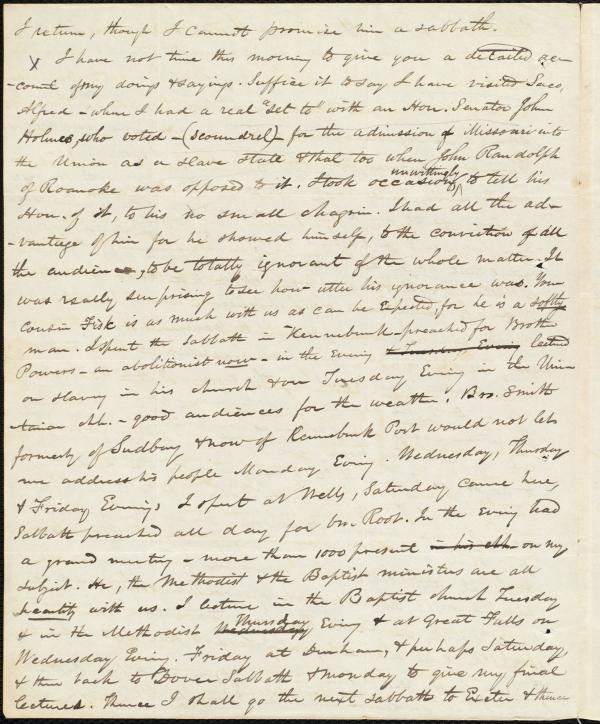 I return, though I cannot promise him a sabbath.
X I have not time this morning to give you a detailed ac-
-count of my doings & sayings. Suffice it to say I have visited Saco,
Alfred - where I had a real "set to" with an Hon. Senator John
Holmes, who voted - (scoundrel) for the admission of Missouri into
the Union as a slave state & that too when John Randolph
of Roanoke was opposed to it. I took occasion, unwittingly to tell his
Hon. of it, to his no small chagrin. I had all the ad-
-vantage of him for he showed himself, to the conviction of all
the audience, to be totally ignorant of the whole matter. It
was really surprising to see how utter his ignorance was. Your
cousin Fisk is as much with us as can be expected, for he is a softly
man. I spent the Sabbath in Kennebunk - preached for Brother
Powers - an abolitionist now - in the Evening & Tuesday Evening lectured
on slavery in his church & on Tuesday Evening in the Unitarian
chh. - good audiences for the weather. Bro. Smith
formerly of Sudbury & now of Kennebunk Port would not let
me address his people Monday Evening. Wednesday, Thursday
& Friday Evenings I spent at Wells, Saturday came here,
Sabbath preached all day for bro. Root. In the Evening had
a grand meeting - more than 1000 present in his chh. on my
subject. He, the Methodist & the Baptist ministers are all
heartily with us. I lecture in the Baptist church Tuesday
& in the Methodist Wednesday Thursday Evening & at Great Falls on
Wednesday Evening. Friday at Durham, & perhaps Saturday,
& then back to Dover Sabbath & Monday to give my final
lectures. Thence I shall go the next sabbath to Exeter & thence